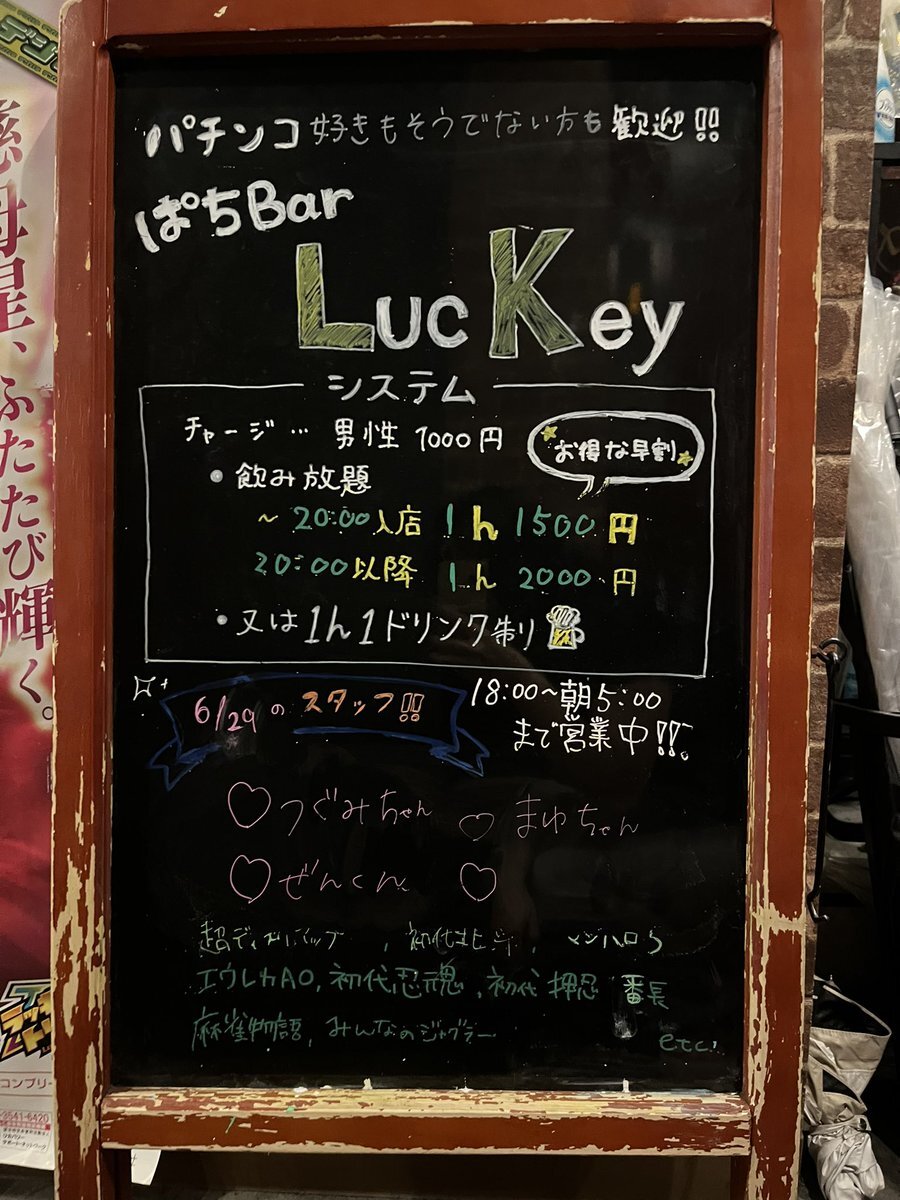 パチンコ好きもそうでない方も歓迎!!
ぱちBar
LucKey
システム
チャージ… 男性 1000円
お得な早割
・飲み放題
~20:00入店 1h 1500円
20:00以降 1h 2000円
・又は1h1ドリンク制り
6/29のスタッフ!!
18:00~朝5:00
まで営業中!!。
つぐみちゃん
まゆちゃん
ぜんくん
初代北斗,
エウレカAO,初代忍魂,初代 押忍 番長
麻雀物語,みんなのジャグラー
etc.
慈母星、ふたたび輝く。
コンプリ
541-6420